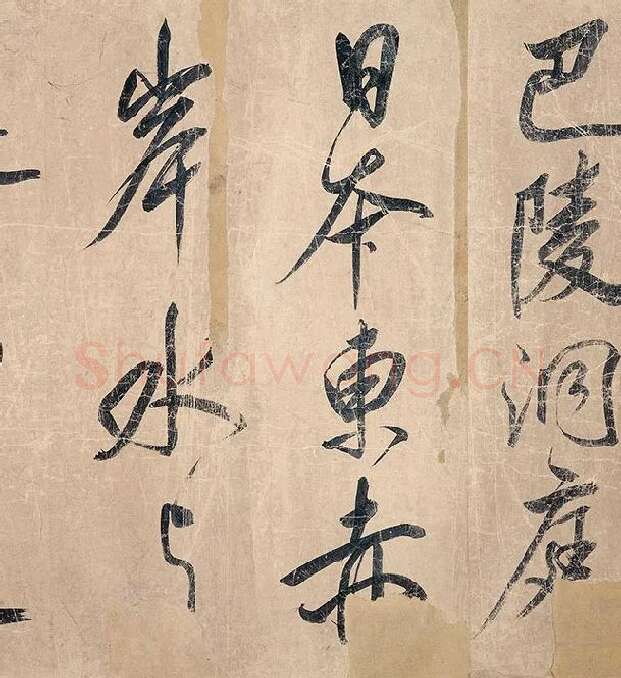 巴陵洞庭
日本東赤
岸水与
Shufawang.CN